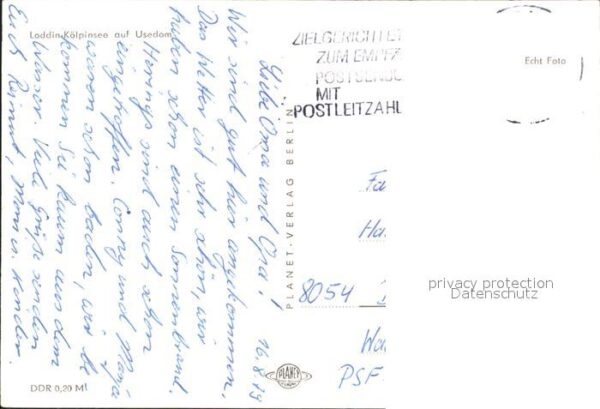 Loddin-Kölpinsee auf Usedom
16.8.79
Liebe Oma und Opa!
Wir sind gut hier angekommen.
Das Wetter ist sehr schön, wir
haben schon einen Sonnenbrand.
Heringe sind auch schon
eingetroffen. Conny und
waren schon baden, wir be
kommen sie kaum aus dem
Wasser. Viele Grüße senden
Euch Reinm., Mon u. Kinder
DDR 0,20 M
PLANET-VERLAG BERLIN
PLANET
ZIELGERICHTET
ZUM EMPFÄ
POSTSENDU
MIT
POSTLEITZAHL
Echt Foto
Fa
Ha
8054
Wa
PSF
privacy protection
Datenschutz